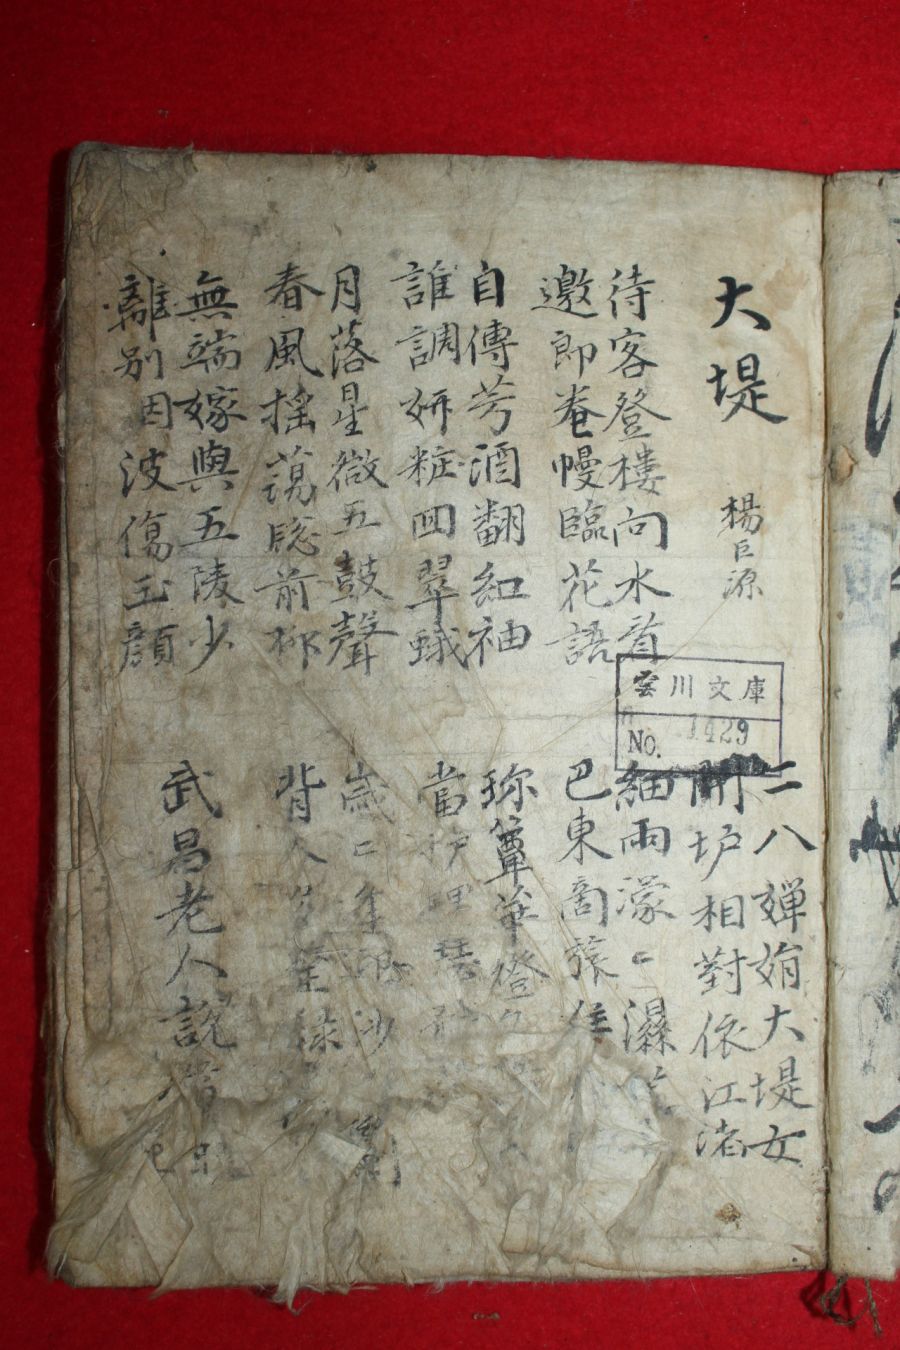 大堤 楊巨源
二八嬋娟大堤女
開垆相對依江渚
待客登樓向水首
邀郎卷幔臨花語
細雨濛〻濕
巴東商
自傳芳酒翻紅袖
誰調妍粧回翠蛾
珎簟華燈
當垆理瑟
月落星微五鼓聲
春風搖蕩窓前柳
歲〻逢迎沙 間
背人多
無端嫁與五陵少
離別因波傷玉顏
武昌老人說笛歌
雲川文庫
No. 1429